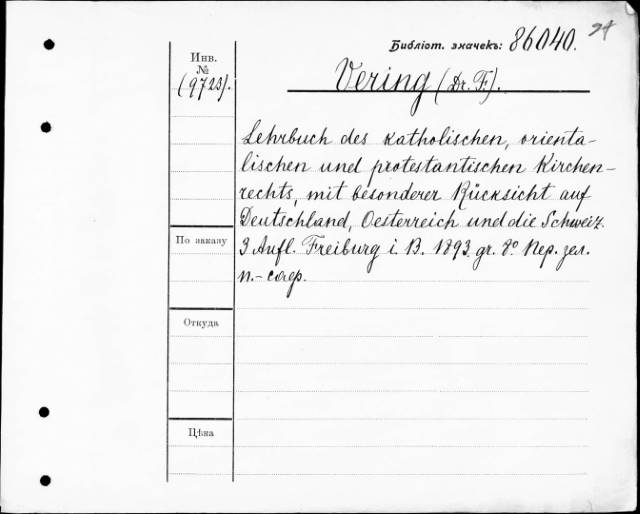 24
Библіот. значекъ: 86040.
Инв.
№
(9723).
Vering (Dr. F.).
Lehrbuch des katholischen, orienta-
lischen und protestantischen Kirchen-
rechts, mit besonderer Rücksicht auf
Deutschland, Oesterreich und die Schweiz.
3 Aufl. Freiburg i. B. 1893. gr. 8° Пер. зел.
п.-сафр.
По заказу
Откуда
Цѣна